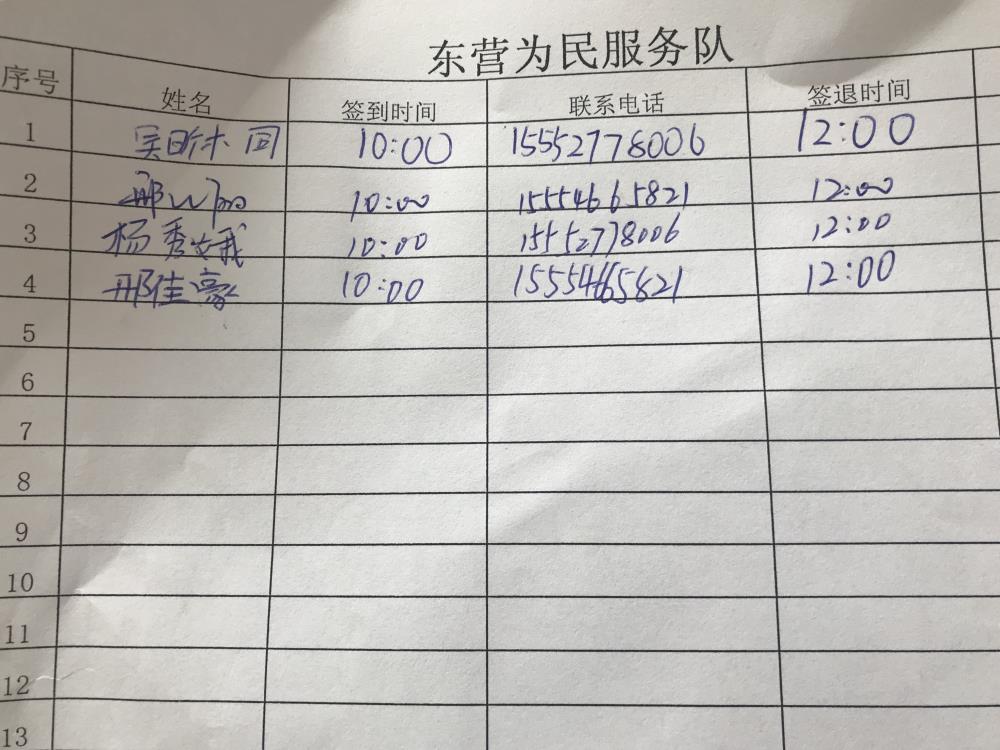 东营为民服务队
序号 姓名 签到时间 联系电话 签退时间
1 吴昕 10:00 15552778006 12:00
2 10:00 15554665821 12:00
3 杨秀娥 10:00 15552778006 12:00
4 邢佳豪 10:00 15554665821 12:00
5
6
7
8
9
10
11
12
13